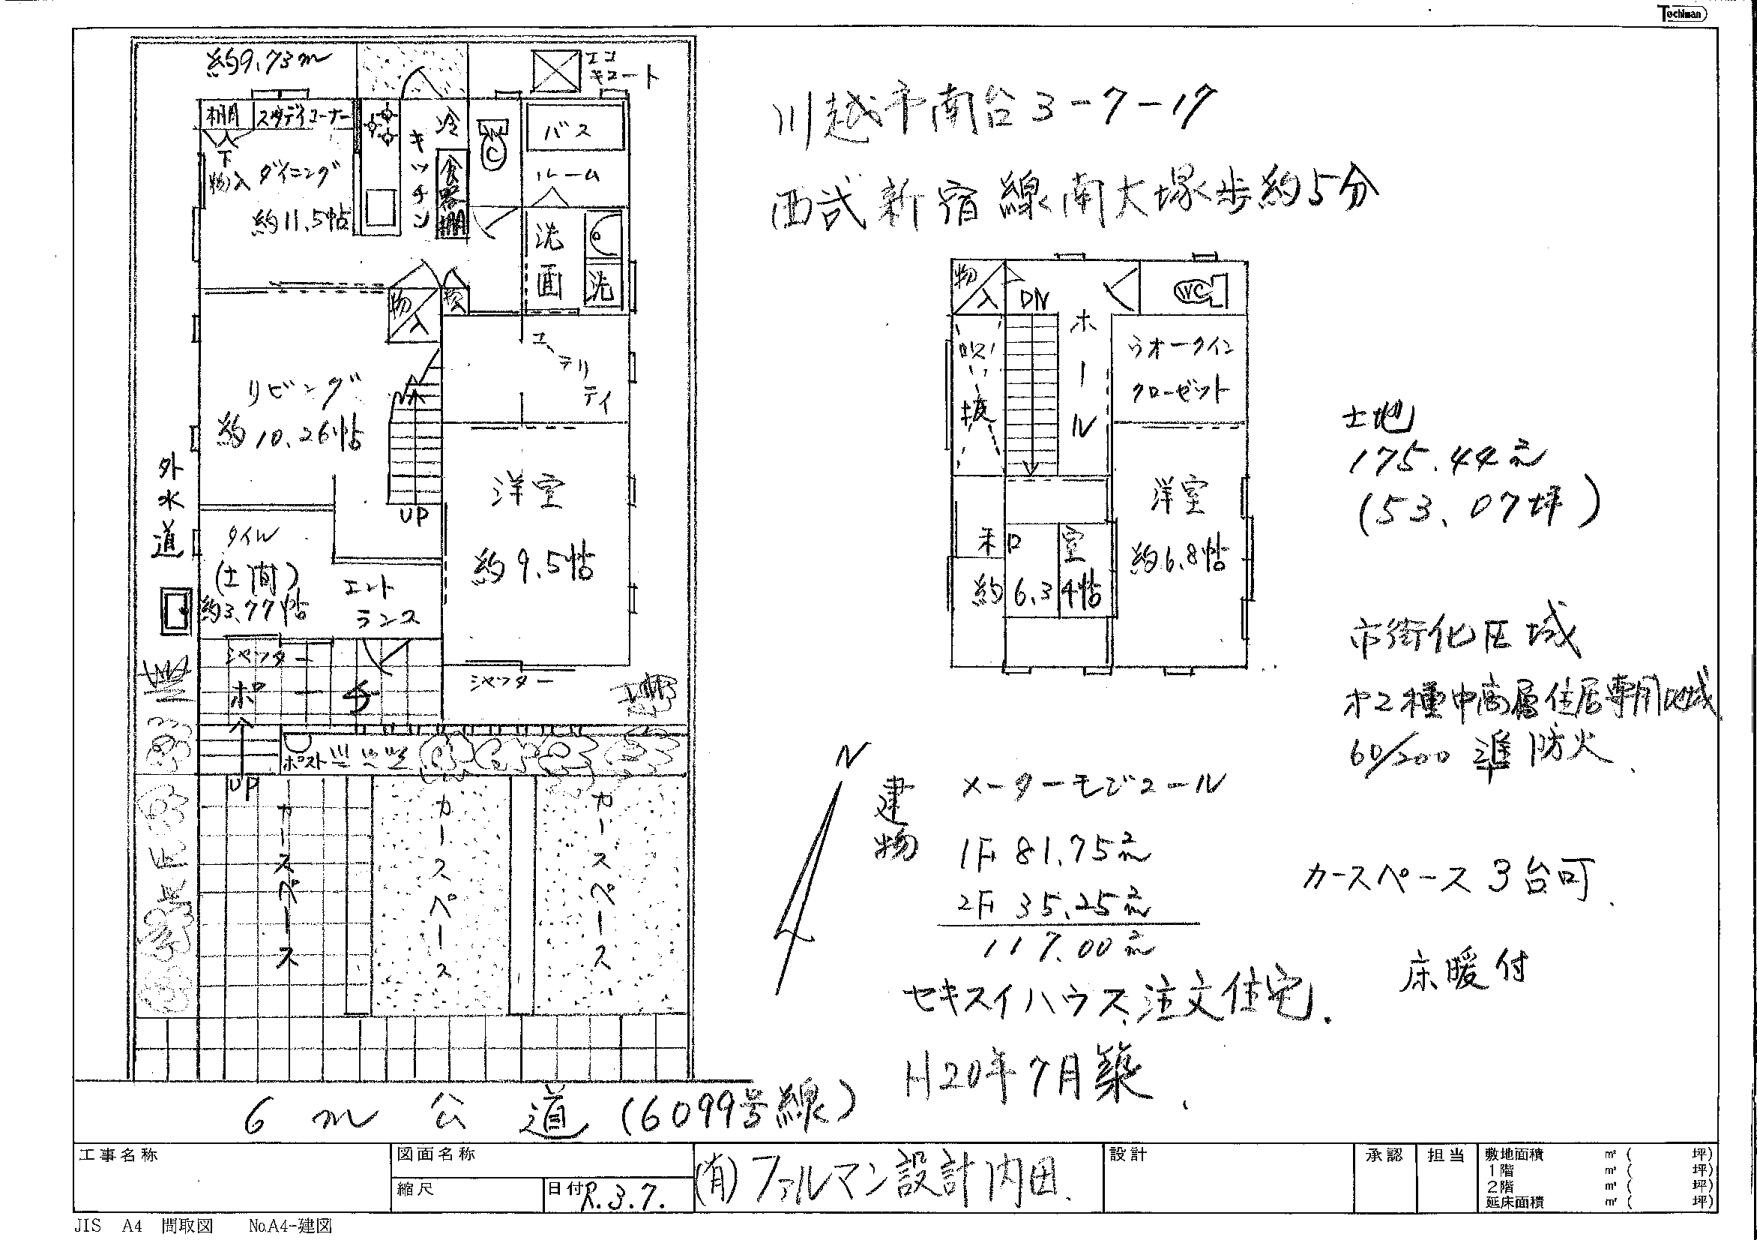 Tochiman
約9.73m
エコ
キュート
棚
スタディコーナー
冷
キッチン
食器棚
WC
バス
ルーム
下
物入
ダイニング
約11.5帖
洗面
洗
物入
物
ユーティリティ
リビング
約10.26帖
UP
外水道
タイル
(土間)
約3.77帖
エント
ランス
洋室
約9.5帖
シャッター
ポーチ
シャッター
UP
ポスト
カースペース
カースペース
カースペース
6m 公道(6099号線)
川越市南台3-7-17
西武新宿線南大塚歩約5分
物入
DN
WC
ホール
吹抜
ウオークイン
クローゼット
和室
約6.34帖
洋室
約6.8帖
土地
175.44㎡
(53.07坪)
市街化区域
オ2種中高層住居専用地域
60/200 準防火.
N
建物
メーターモジュール
1F 81.75㎡
2F 35.25㎡
117.00㎡
カースペース3台可.
床暖付
セキスイハウス.注文住宅.
H20年7月築.
工事名称
図面名称
縮尺
日付 R.3.7.
(有)ファルマン設計内田.
設計
承認
担当
敷地面積 ㎡ ( 坪)
1階 ㎡ ( 坪)
2階 ㎡ ( 坪)
延床面積 ㎡ ( 坪)
JIS A4 間取図 No.A4-建図